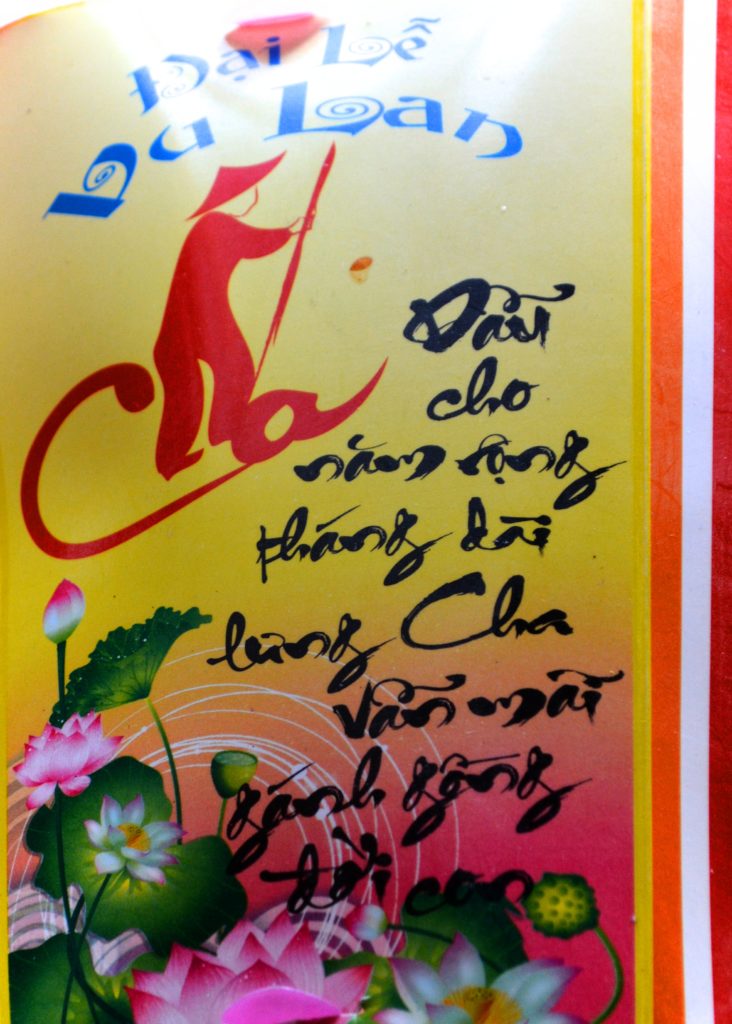 Đại Lễ
Vu Lan
Cha
Dẫu
cho
năm rộng
tháng dài
lưng Cha
vẫn mãi
gánh gồng
đời con